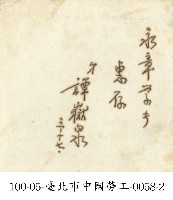 永章學弟
惠存
弟
譚嶽泉
三、十七、
100-05-臺北市中國勞工-0058-2